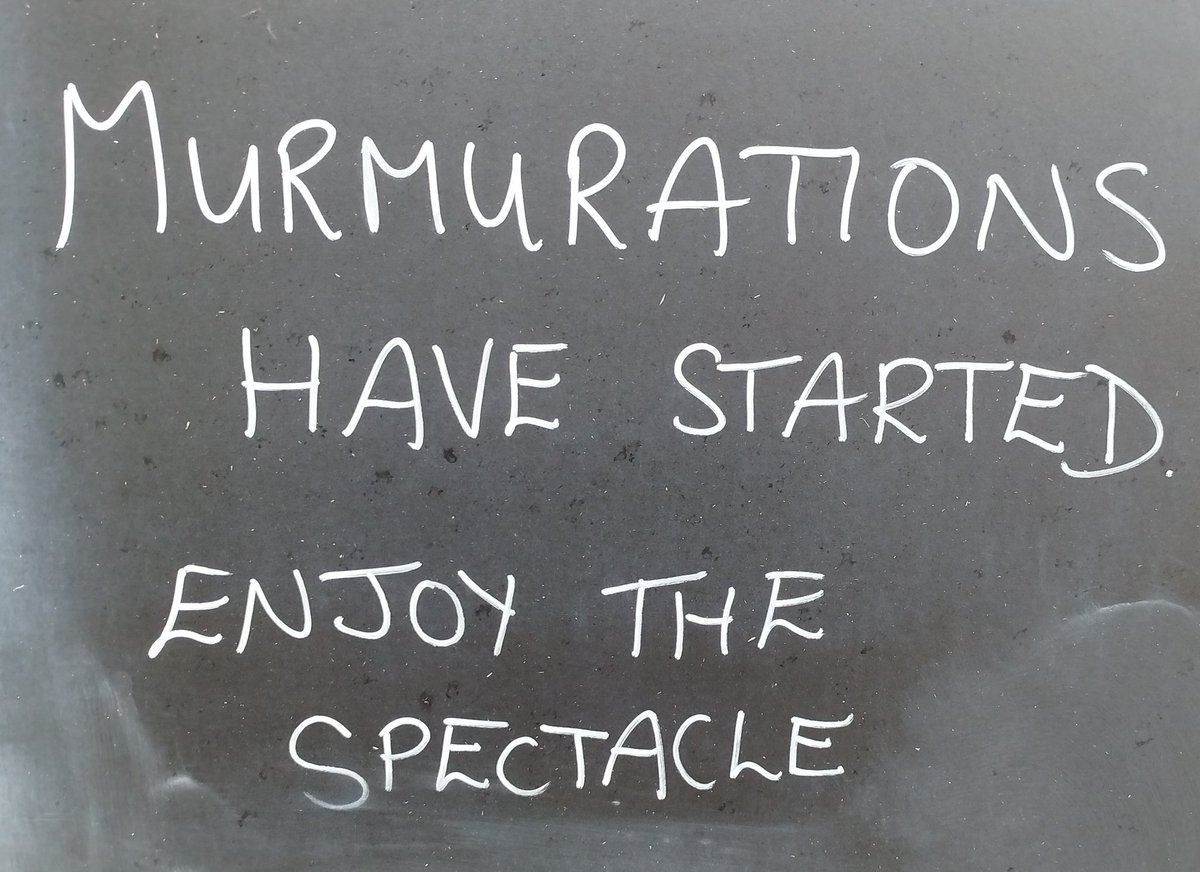 MURMURATIONS
HAVE STARTED.
ENJOY THE
SPECTACLE